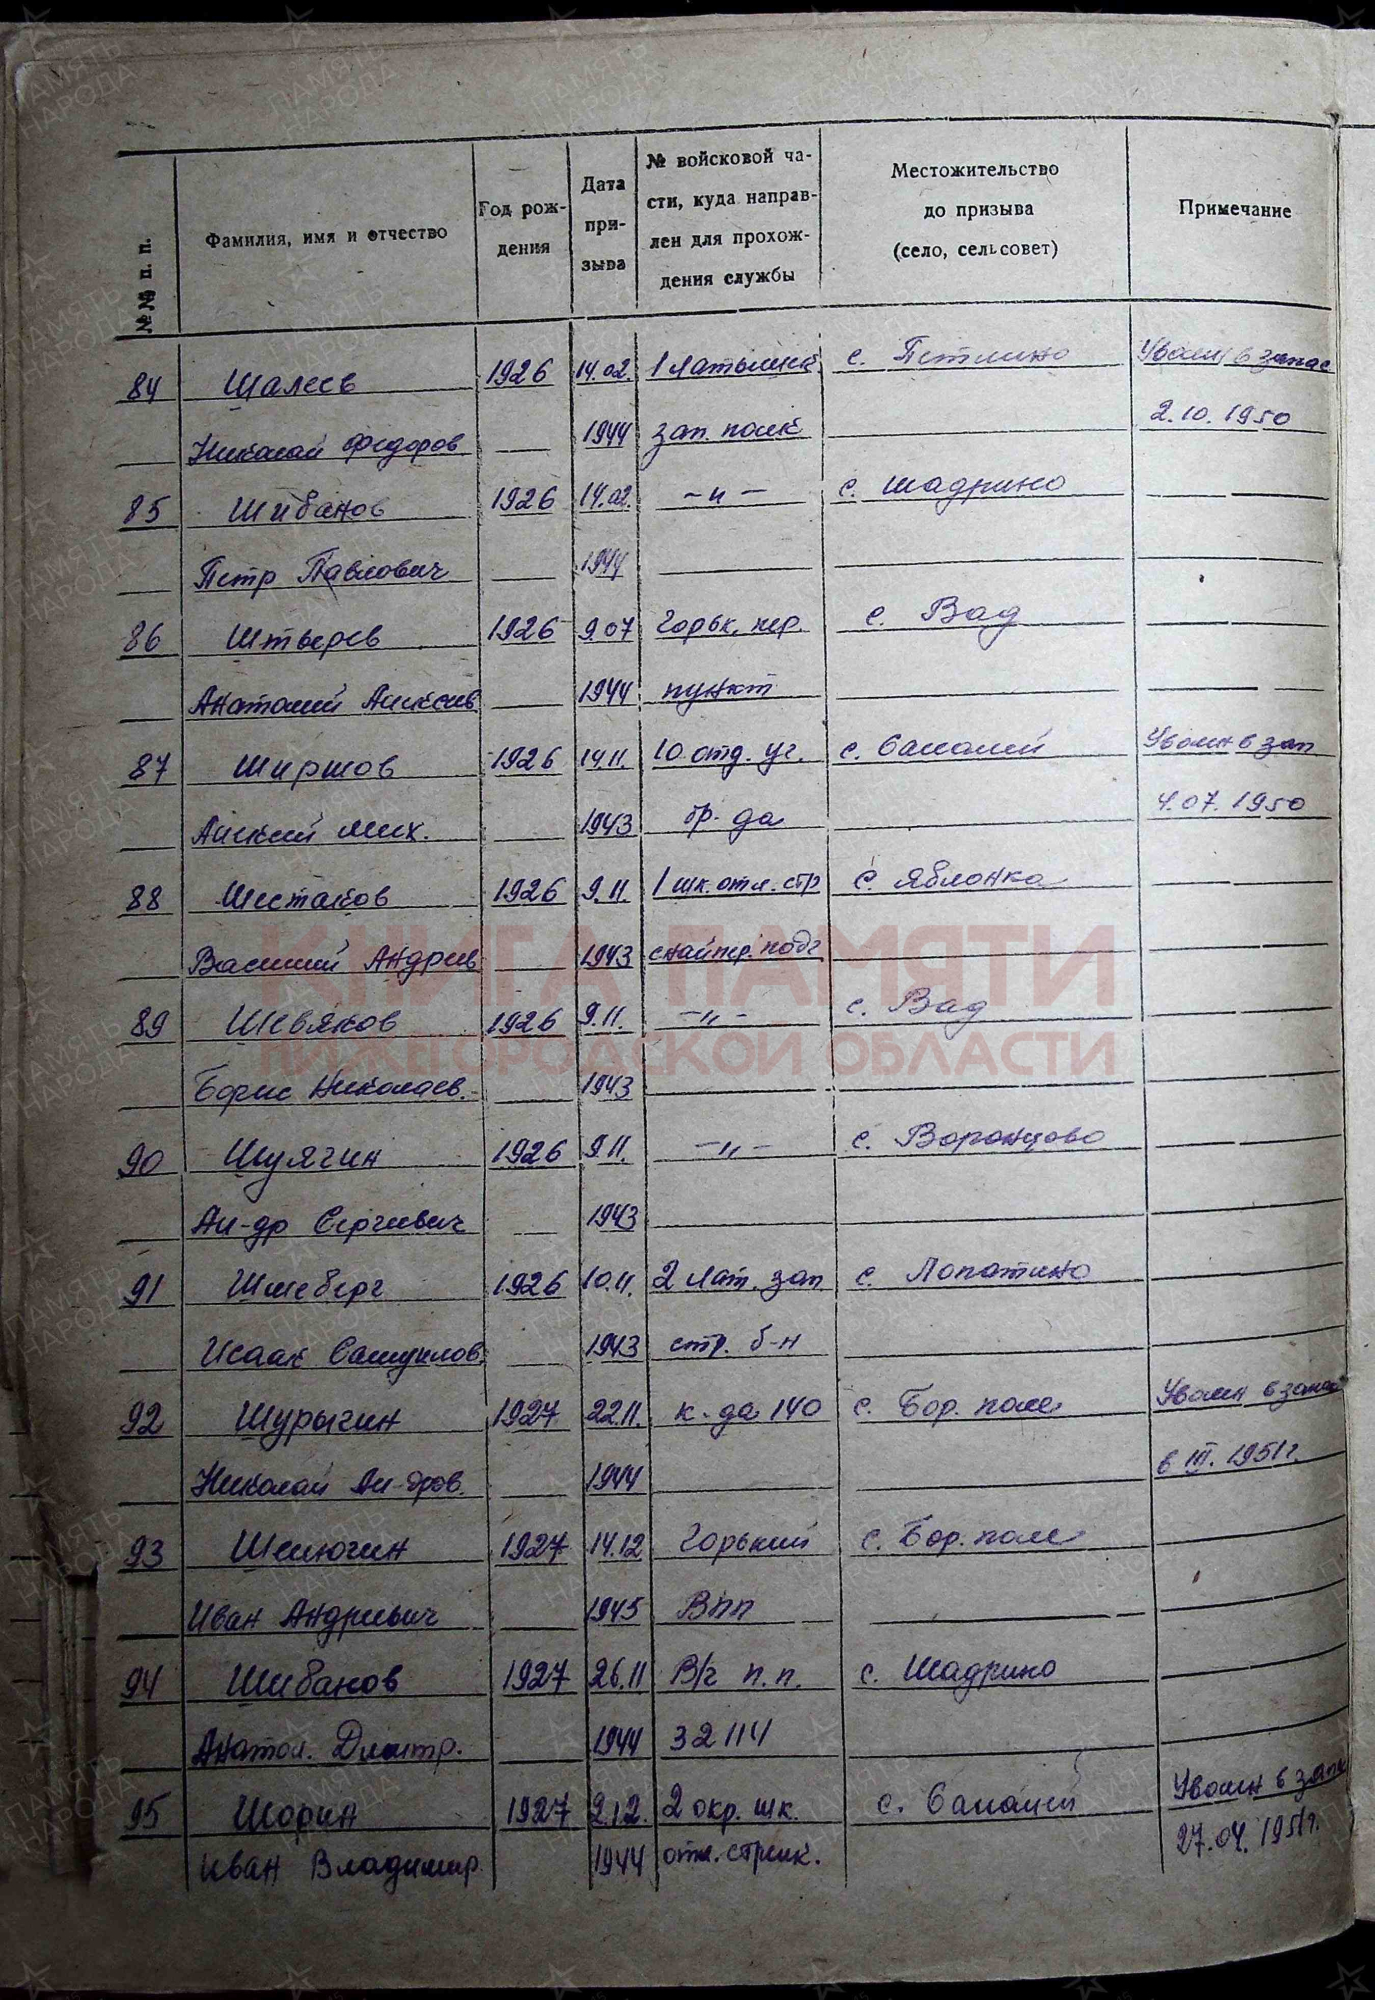 №№ п. п.
Фамилия, имя и отчество
Год рождения
Дата призыва
№ войсковой части, куда направлен для прохождения службы
Местожительство
до призыва
(село, сельсовет)
Примечание
84 Шалеев 1926 14.02. 1 Латышск с. Петлино Уволен в запас
Николай Федоров 1944 зап. полк 2.10.1950
85 Шибанов 1926 14.02. -"- с. Шадрино
Петр Павлович 1944
86 Штырев 1926 9.07 Горьк. пер. с. Вад
Анатолий Алексеев 1944 пункт
87 Ширшов 1926 14.11. 10 отд. уч. с. Салалей Уволен в зап
Алексей Мих. 1943 бр-да 4.07.1950
88 Шестаков 1926 9.11. 1 шк. отл. стр с. Яблонка
Василий Андреев 1943 снайпер. подг
89 Шевяков 1926 9.11. -"- с. Вад
Борис Николаев. 1943
90 Шулягин 1926 9.11. -"- с. Воронцово
Ал-др Сергеевич 1943
91 Шлеберг 1926 10.11. 2 Лат. зап с. Лопатино
Исаак Самуилов. 1943 стр. б-н
92 Шурыгин 1927 22.11. к-да 140 с. Бор. поле Уволен в запас
Николай Ал-дров. 1944 в III. 1951г.
93 Шелюгин 1927 14.12 Горький с. Бор. поле
Иван Андреевич 1945 ВПП
94 Шибанов 1927 26.11 В/ч п.п. с. Шадрино
Анатол. Дмитр. 1944 32114
95 Шорин 1927 2.12. 2 окр. шк. с. Салалей Уволен в запас
Иван Владимир 1944 отл. стрелк. 27.04.1951г.
КНИГА ПАМЯТИ
НИЖЕГОРОДСКОЙ ОБЛАСТИ
ПАМЯТЬ
НАРОДА